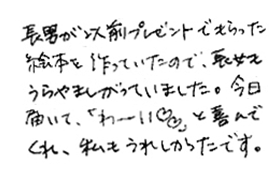 長男が以前プレゼントでもらった
絵本を作っていたので、長女も
うらやましがっていました。今日
届いて、「わーい♡♡」と喜んで
くれ、私もうれしかったです。